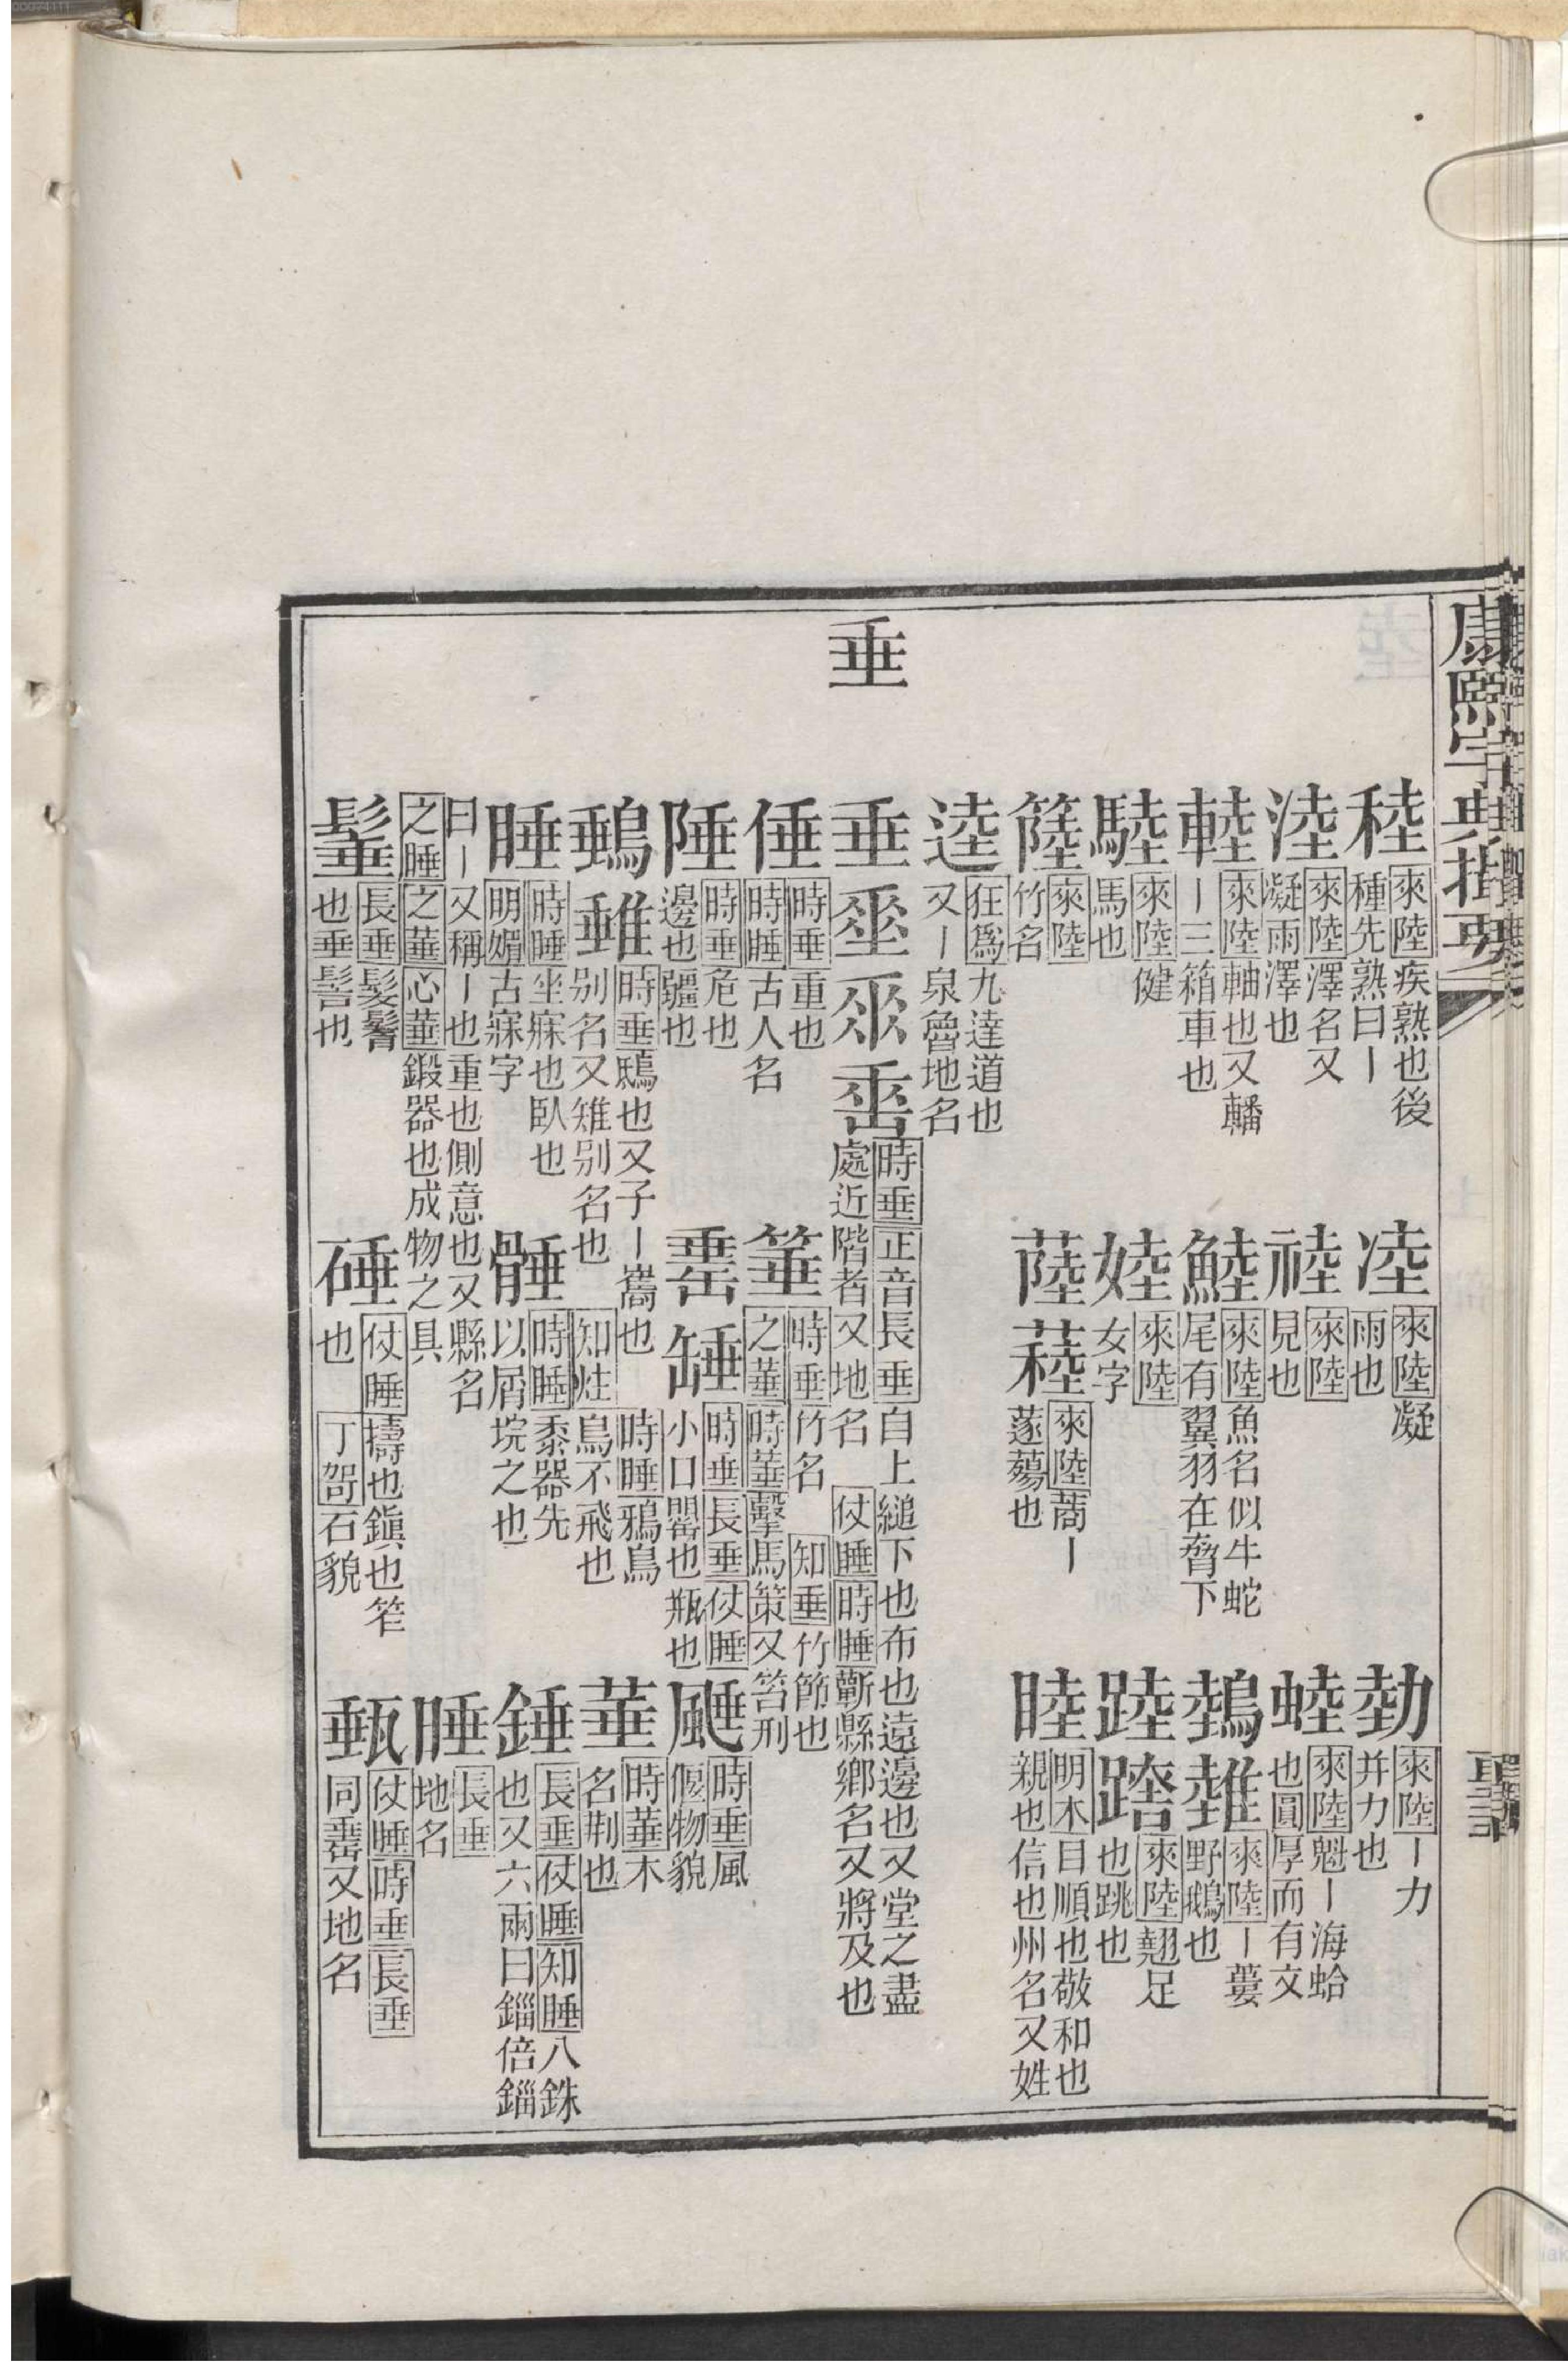 康熙字典撮要
稑 來陸 疾熟也後種先熟曰丨
淕 來陸 凝雨澤也 澤名又
凌
垂
稑 來陸 疾熟也後
種先熟曰丨
淕 來陸 澤名又
凝雨澤也
䡜 來陸 軸也又轓
丨三箱車也
騄 來陸 健
馬也
來陸
竹名
逵 狂爲 九達道也
又丨泉魯地名
來陸 凝
雨也
來陸
見也
鯥 來陸 魚名似牛蛇
尾有翼羽在脅下
來陸
女字
來陸 蔏丨
蓫薚也
來陸 丨力
并力也
來陸 魁丨海蛤
也圓厚而有文
來陸 丨蔞
野鵝也
踛 來陸 翹足
也跳也
睦 明木 目順也敬和也
親也信也州名又姓
垂 時垂 正音長垂 自上縋下也布也遠邊也又堂之盡
處近階者又地名 仗睡 時睡 蘄縣鄉名又將及也
倕 時垂 重也
時睡 古人名
箠 時垂 竹名 知垂 竹節也
之菙 時菙 擊馬策又笞刑
陲 時垂 危也
邊也疆也
時垂 長垂 仗睡
小口罌也瓶也
時垂 風
偃物貌
時垂 鴟也又子丨巂也 時睡 鴉鳥
别名又雉别名也 知炷 鳥不飛也
菙 時菙 木
名荆也
睡 時睡 坐寐也臥也
明媚 古寐字
時睡 黍器先
以屑垸之也
錘 長垂 仗睡 知睡 八銖
也又六兩曰錙倍錙
曰丨又稱丨也重也側意也又縣名
之睡 之菙 心菙 鍛器也成物之具
腄 長垂
地名
鬌 長垂 髮鬌
也垂髻也
硾 仗睡 擣也鎭也笮
也 丁哿 石貌
甀 仗睡 時垂 長垂
同罋又地名